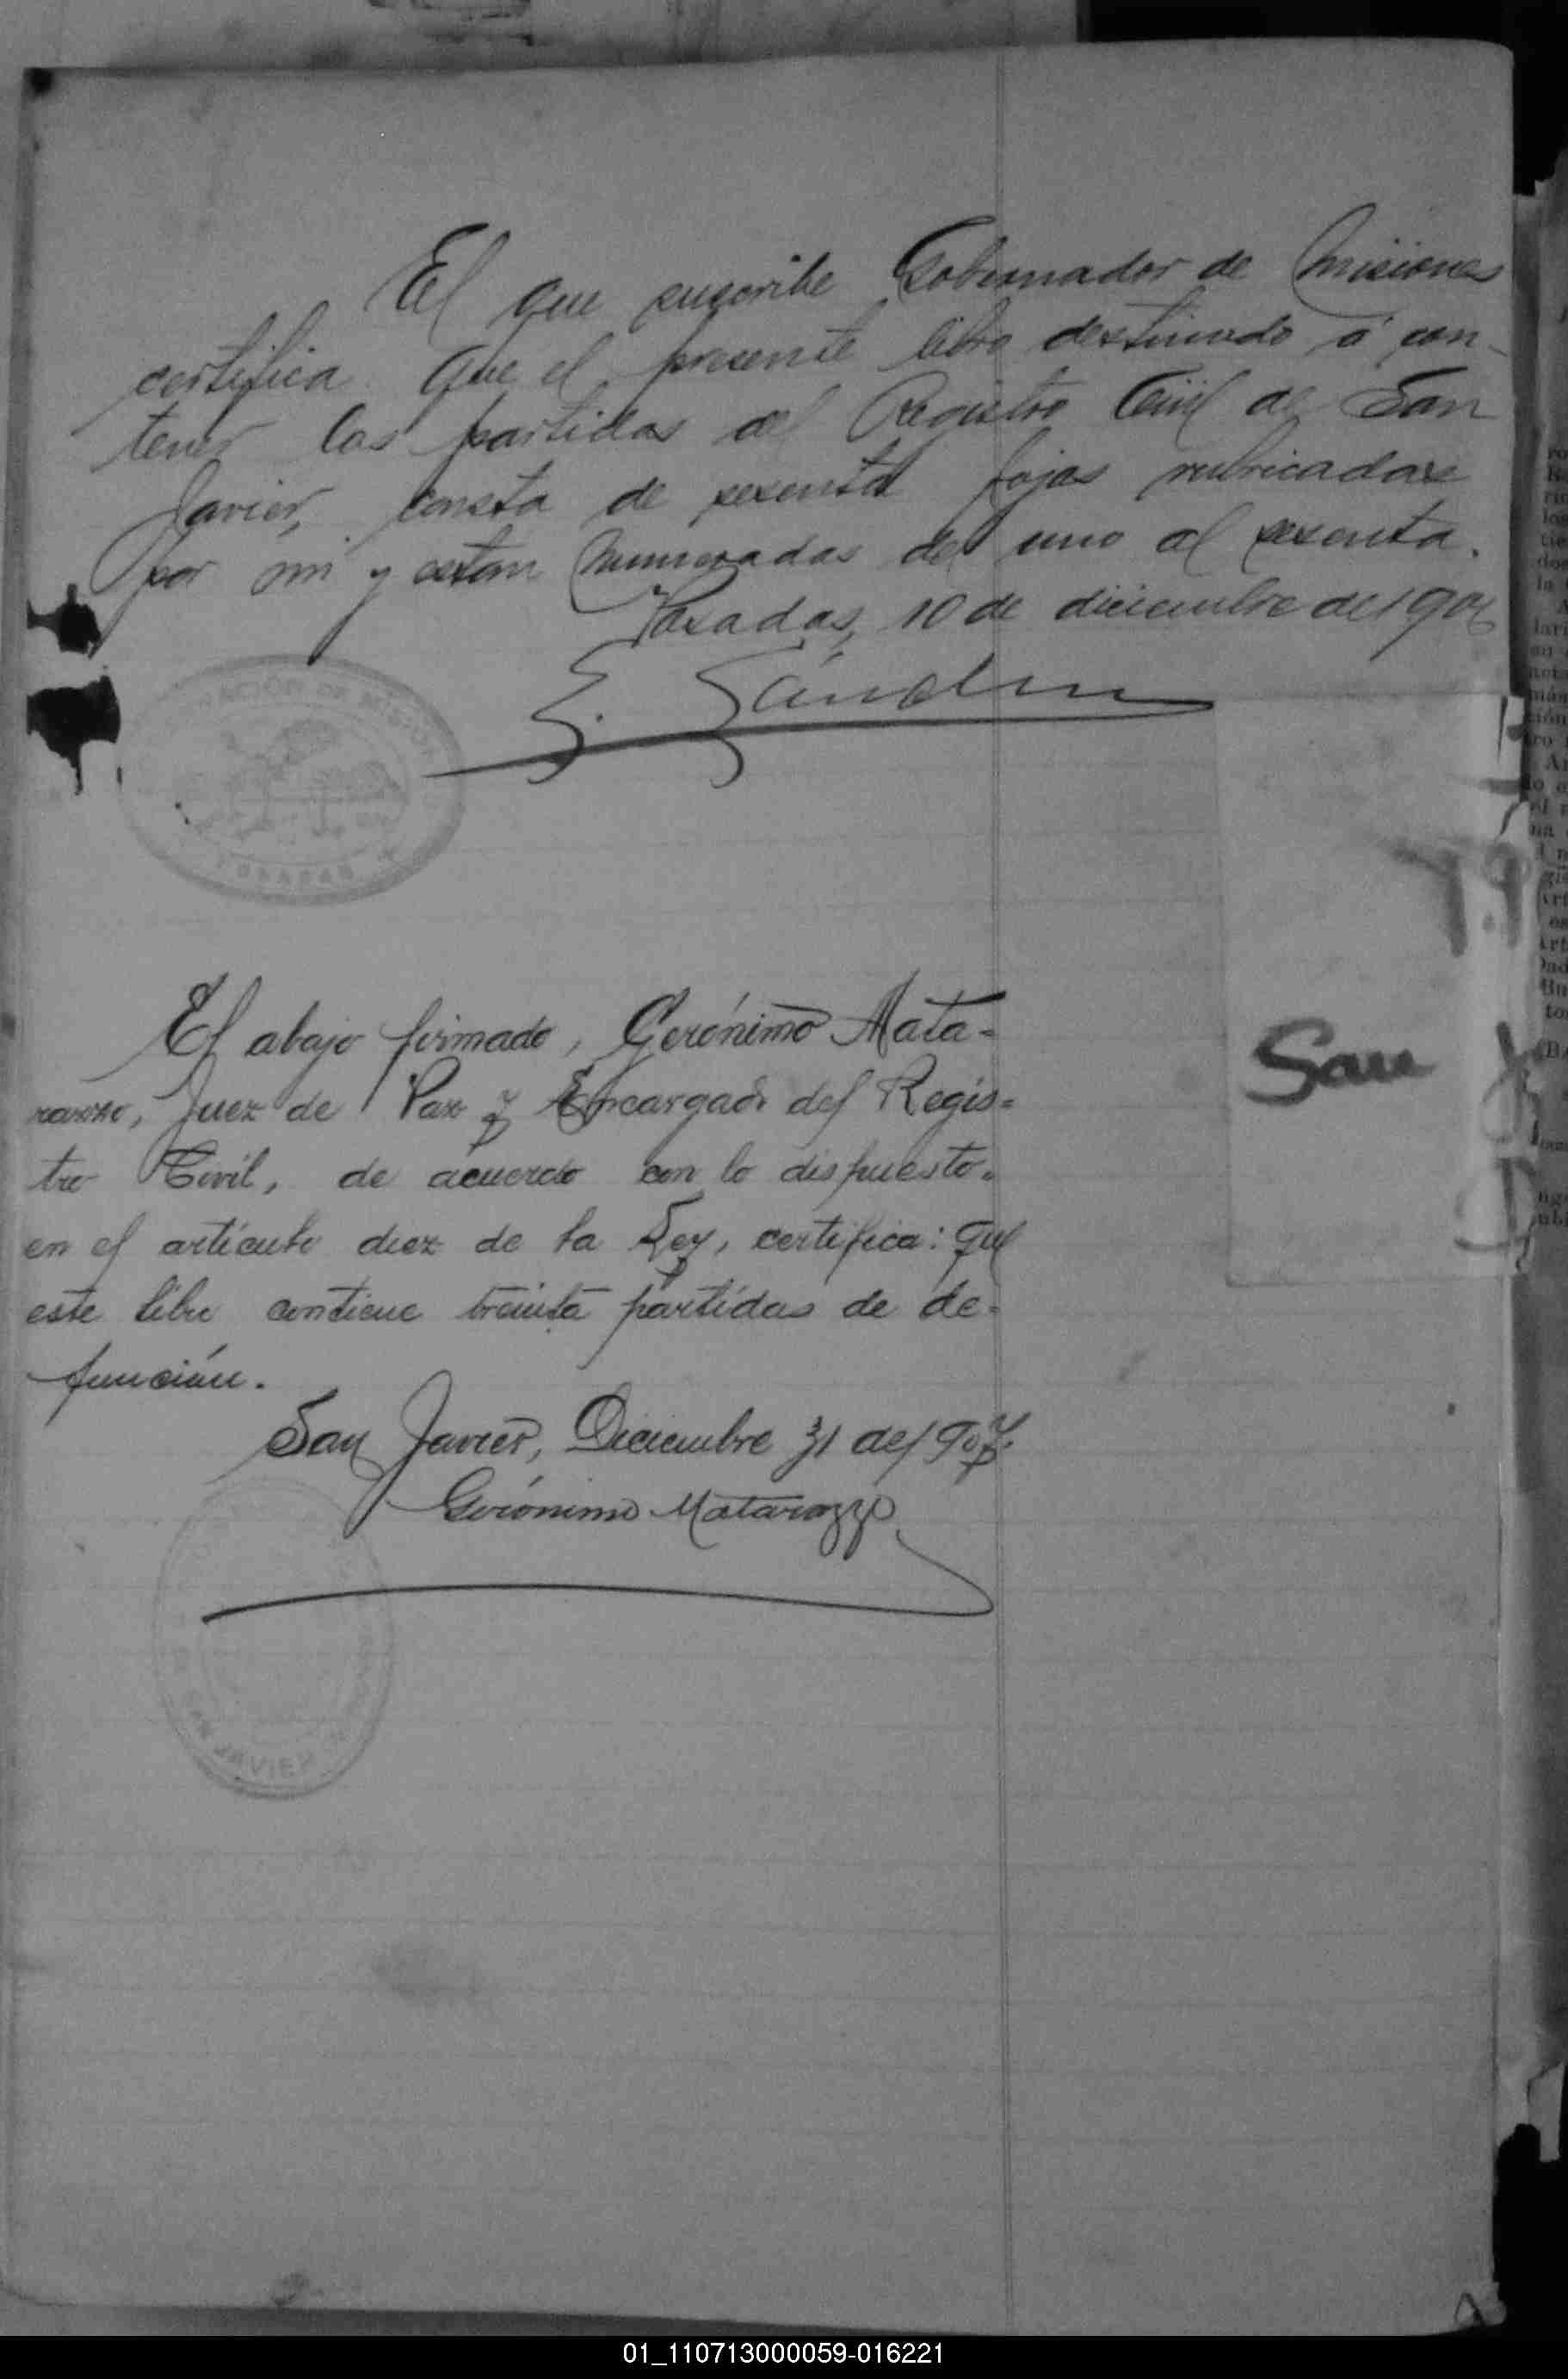 El que suscribe Gobernador de Misiones
certifica que el presente libro destinado á con-
tener las partidas del Registro Civil de San
Javier, consta de sesenta fojas rubricadas
por mi y estan numeradas del uno al sesenta.
Posadas, 10 de diciembre de 190
El abajo firmado, Gerónimo Mata-
razzo, Juez de Paz y Encargado del Regis-
tro Civil, de acuerdo con lo dispuesto
en el artículo diez de la Ley, certifica: que
este libro contiene treinta partidas de de-
función.
San Javier, Diciembre 31 de 190
Gerónimo Matarazzo
San
SAN JAVIER
01_110713000059-016221